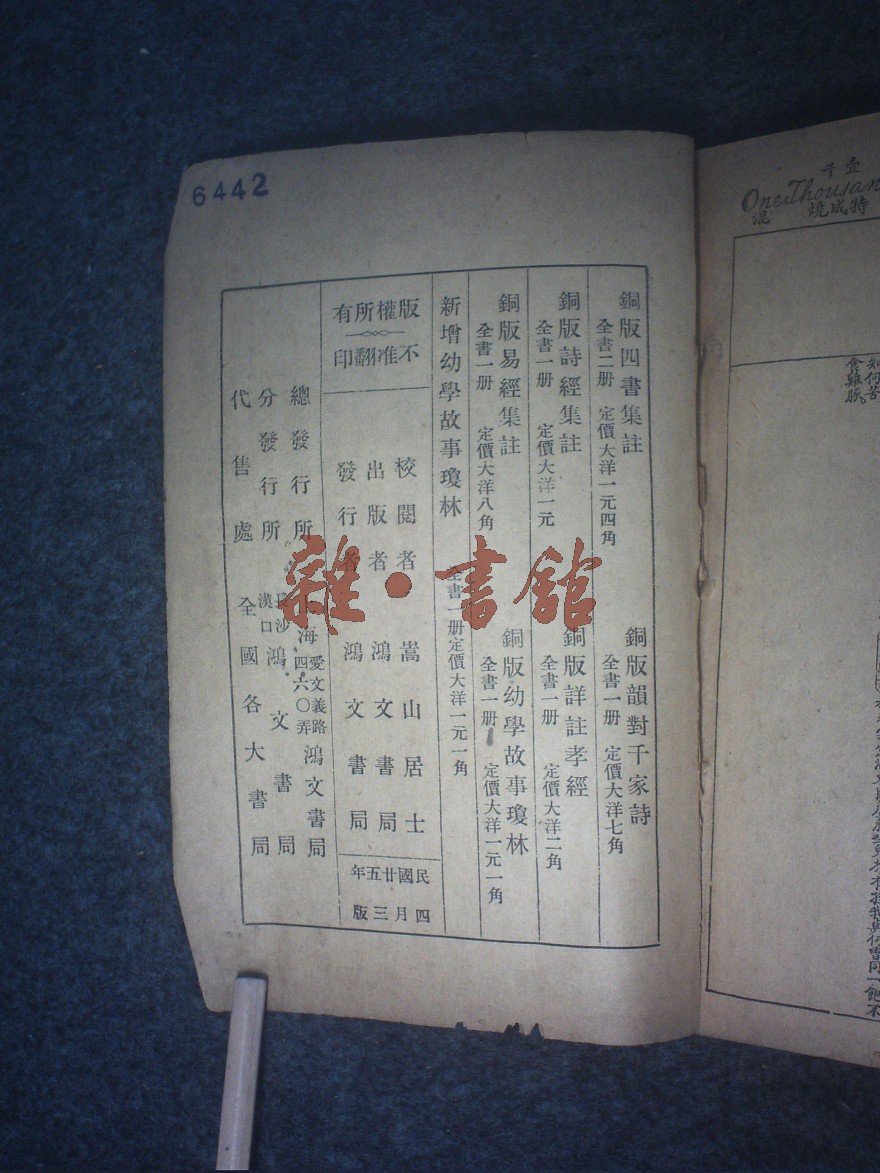 6442
銅版四書集註
全書二册 定價大洋一元四角
銅版韻對千家詩
全書一册 定價大洋七角
銅版詩經集註
全書一册 定價大洋一元
銅版詳註孝經
全書一册 定價大洋二角
銅版易經集註
全書一册 定價大洋八角
銅版幼學故事瓊林
全書一册 定價大洋一元一角
新增幼學故事瓊林 全書一册定價大洋一元一角
版權所有
不准翻印
校閱者 嵩山居士
出版者 鴻文書局
發行者 鴻文書局
民國廿五年
四月三版
總發行所 上海愛文義路四六〇弄鴻文書局
分發行所 長沙漢口鴻文書局
代售處 全國各大書局
雜·書館
壹千
One Thousan
特成燒混
如何苦
食雞豚